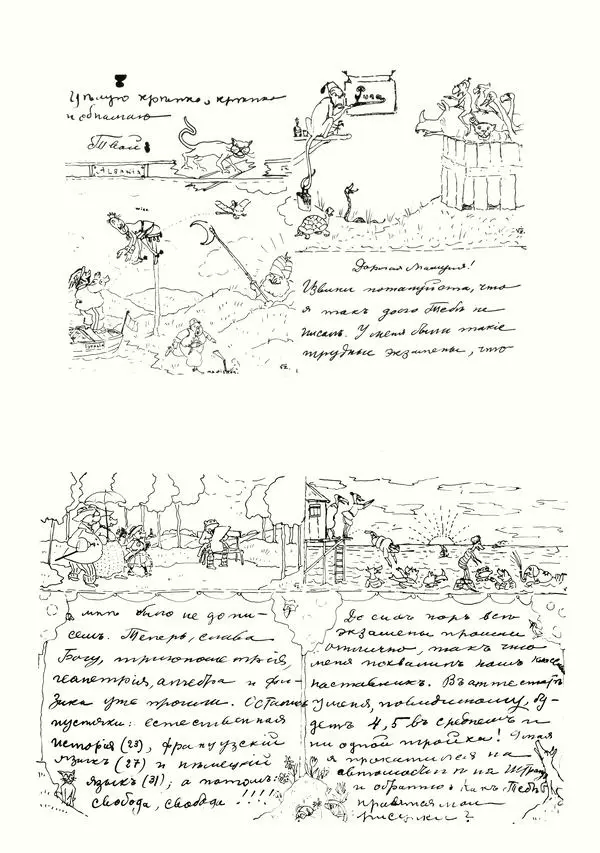 Цѣлую крѣпко, крѣпко
и обнимаю
Твой
ALBANIA
Дорогая Мамуся!
Извини пожалуйста, что
я такъ долго Тебѣ не
писалъ. У меня были такіе
трудные экзамены, что
мнѣ было не до пи-
семъ. Теперь, слава
Богу, тригонометрія,
геометрія, алгебра и фи-
зика уже прошли. Остались
пустяки: естественная
исторія (23), французскій
языкъ (27) и нѣмецкій
языкъ (31); а потомъ:
свобода, свобода !!!!
До сихъ поръ всѣ
экзамены прошли
отлично, такъ что
меня похвалилъ нашъ классн.
наставникъ. Въ аттестатѣ
у меня, повидимому, бу-
детъ 4,5 въ среднемъ и
ни одной тройки! 9 мая
я прокатился на
автомобилѣ на
и обратно. Какъ Тебѣ
нравятся мои
рисунки?